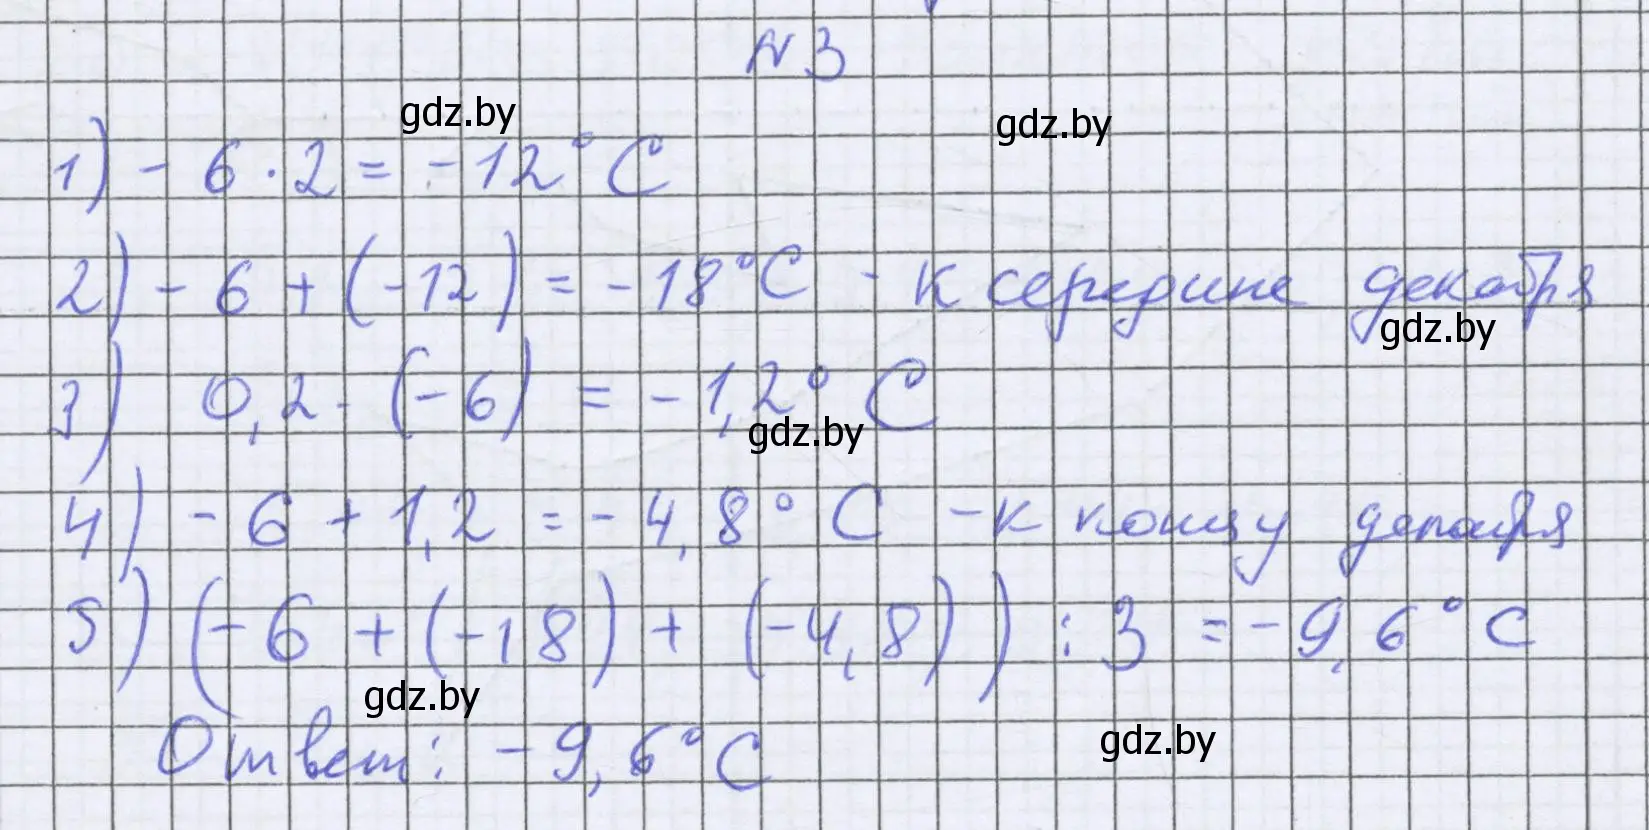 №3
gdz.by
gdz.by
1) - 6 · 2 = -12° C
2) - 6 + (-12) = -18°C - к середине декабря
gdz.by
3) 0,2 · (-6) = -1,2° C
gdz.by
4) - 6 + 1,2 = -4,8° C - к концу декабря
5) (-6 + (-18) + (-4,8)) : 3 = -9,6° C
gdz.by
Ответ: -9,6° C
gdz.by